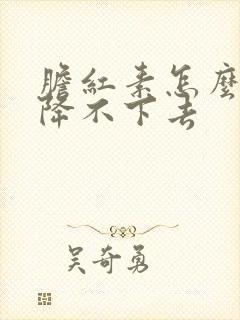 膽紅素怎麼
降不下去
吴奇勇